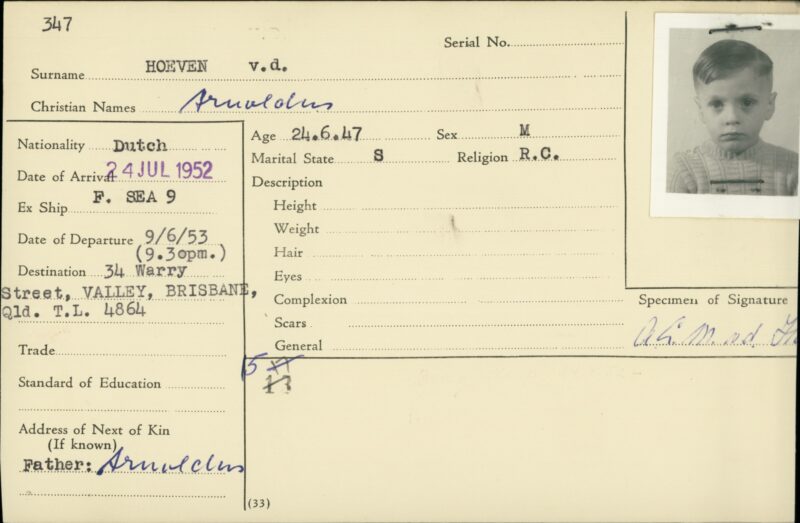 347
Serial No.
Surname HOEVEN v.d.
Christian Names Arnoldus
Nationality Dutch
Date of Arrival 24 JUL 1952
Ex Ship F. SEA 9
Date of Departure 9/6/53
(9.30pm.)
Destination 34 Warry
Street, VALLEY, BRISBANE,
Qld. T.L. 4864
Trade
Standard of Education
Address of Next of Kin
(If known)
Father: Arnoldus
Age 24.6.47 Sex M
Marital State S Religion R.C.
Description
Height
Weight
Hair
Eyes
Complexion
Scars
General
5 XI
13
(33)
Specimen of Signature